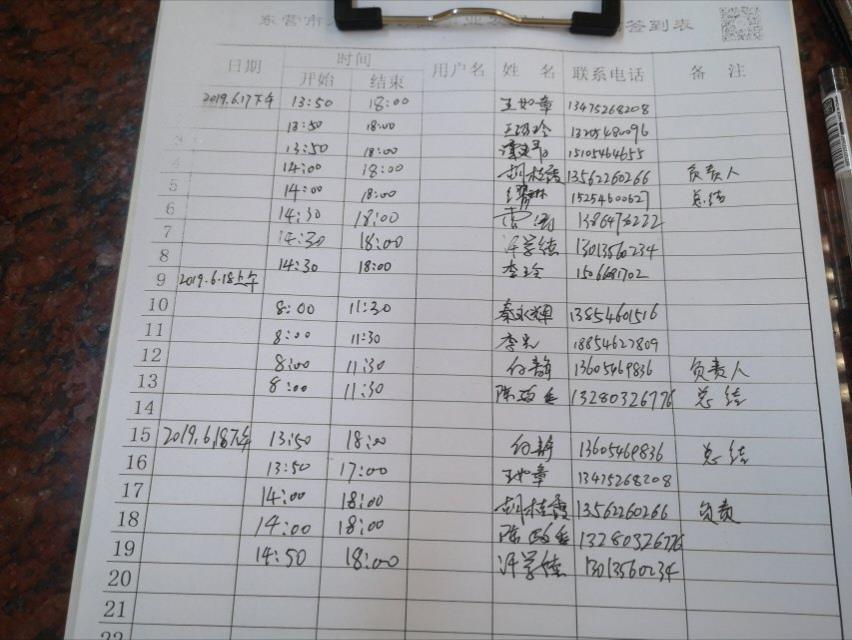 东营市 签到表
日期 时间 用户名 姓 名 联系电话 备 注
开始 结束
2019.6.17下午 13:50 18:00 王如章 13475268208
13:50 18:00
3 13:50 18:00 15105464655
4 14:00 18:00 胡桂霞 13562260266 负责人
5 14:00 18:00 15254600627 总结
6 14:30 18:00 1386476222
7 14:30 18:00 许学德 13013560234
8 14:30 18:00 李玲
9 2019.6.18上午
10 8:00 11:30 秦永辉 13854601516
11 8:00 11:30 18854627809
12 8:00 11:30 付静 13605469836 负责人
13 8:00 11:30 陈 13280326776 总结
14
15 2019.6.18下午 13:50 18:00 付静 13605469836 总结
16 13:50 17:00 王如章 13475268208
17 14:00 18:00 胡桂霞 13562260266 负责
18 14:00 18:00 陈 13280326776
19 14:50 18:00 许学德 13013560234
20
21
22